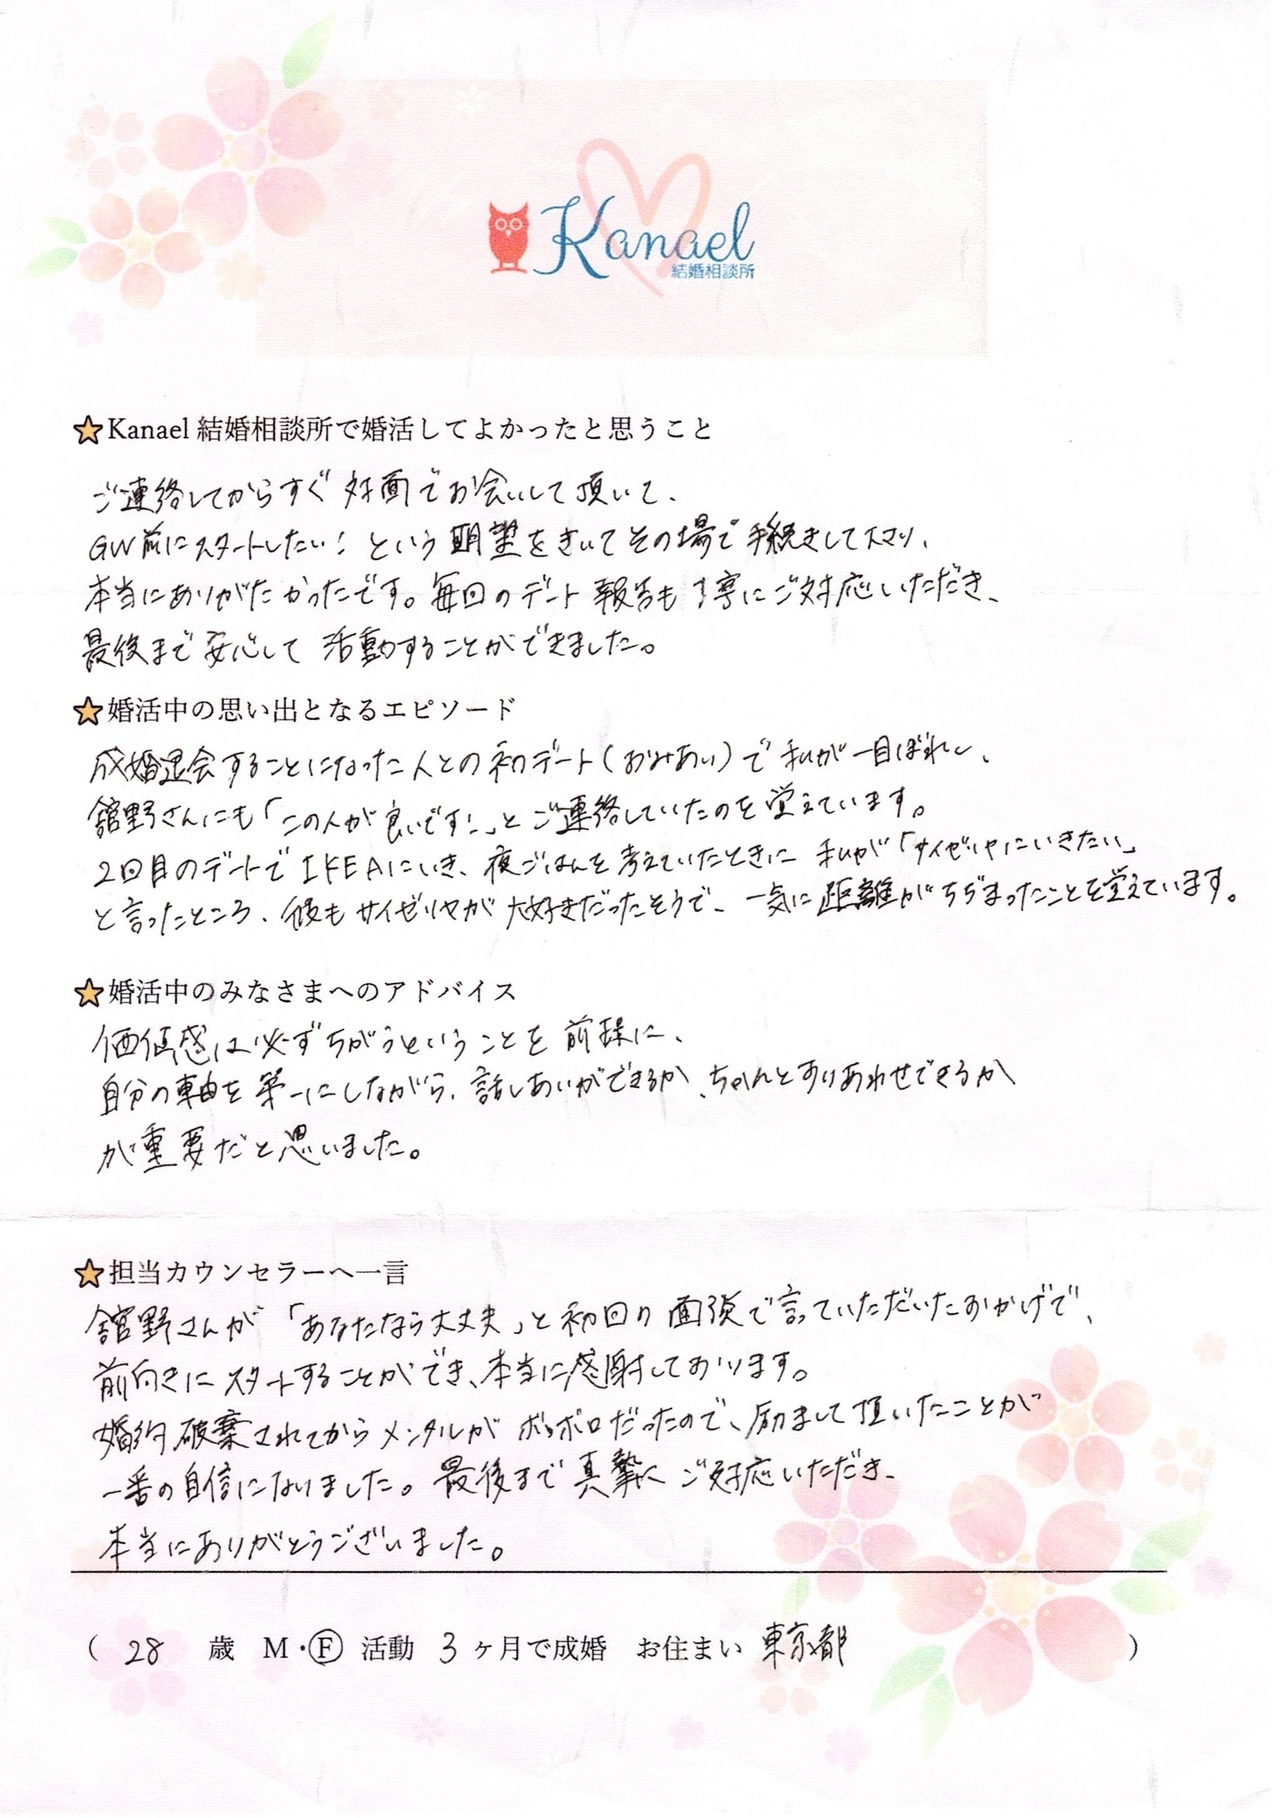 Kanael
結婚相談所
★Kanael 結婚相談所で婚活してよかったと思うこと
ご連絡してからすぐ 対面でお会いして頂いて、
GW前にスタートしたい！という 期望をきいてその場で手続きして下さり、
本当にありがたかったです。毎回のデート報告も丁寧にご対応いただき、
最後まで安心して 活動することができました。
★婚活中の思い出となるエピソード
成婚退会することになった人との初デート(おみあい)で私が一目ぼれし、
舘野さんにも「この人が良いです！」とご連絡していたのを覚えています。
2回目のデートでIKEAにいき、夜ごはんを考えていたときに 私が「サイゼリヤにいきたい」
と言ったところ、彼もサイゼリヤが大好きだったそうで、一気に距離がちぢまったことを覚えています。
★婚活中のみなさまへのアドバイス
価値感は必ずちがうということを前提に、
自分の軸を第一にしながら、話しあいができるか、ちゃんとすりあわせできるか
が重要だと思いました。
★担当カウンセラーへ一言
舘野さんが「あなたなら大丈夫」と初回の面談で言っていただいたおかげで、
前向きにスタートすることができ、本当に感謝しております。
婚約破棄されてからメンタルがボロボロだったので、励まして頂いたことが
一番の自信になりました。最後まで真摯にご対応いただき、
本当にありがとうございました。
( 28 歳 M・F 活動 3 ヶ月で成婚 お住まい 東京都 )